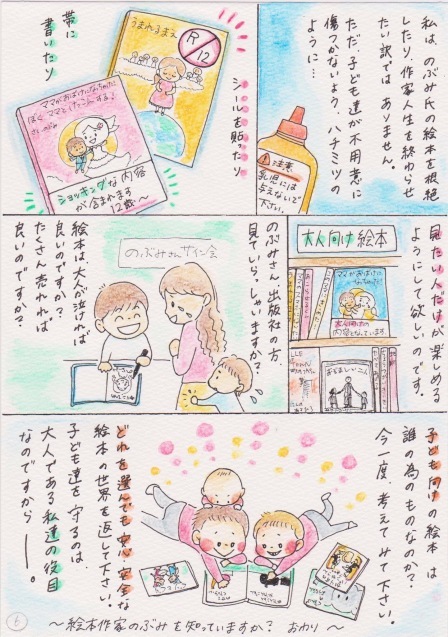 私は、のぶみ氏の絵本を根絶
したり、作家人生を終わらせ
たい訳ではありません。
ただ、子ども達が不用意に
傷つかないよう、ハチミツの
ように…
注意
乳児には
与えないで
下さい。
シールを貼ったり
うまれるまえ
R
12
帯に
書いたり
ママがおばけになっちゃった
ぼく、ママとけっこんする!
さいのぶみ
ショッキングな内容
が含まれます
12歳〜
見たい人だけが楽しめる
ようにして欲しいのです。
大人向け絵本
ママがおばけに
なっちゃった!
大人向けの
内容となっています
のぶみさん、出版社の方、
見ていらっしゃいますか?
のぶみさんサイン会
絵本は大人が泣ければ
良いのですか?
たくさん売れれば
良いのですか?
子ども向けの絵本は
誰の為のものなのか?
今一度、考えてみて下さい。
どれを選んでも安心・安全な
絵本の世界を返して下さい。
子ども達を守るのは、
大人である私達の役目
なのですから―。
6
〜絵本作家のぶみを知っていますか? おわり〜